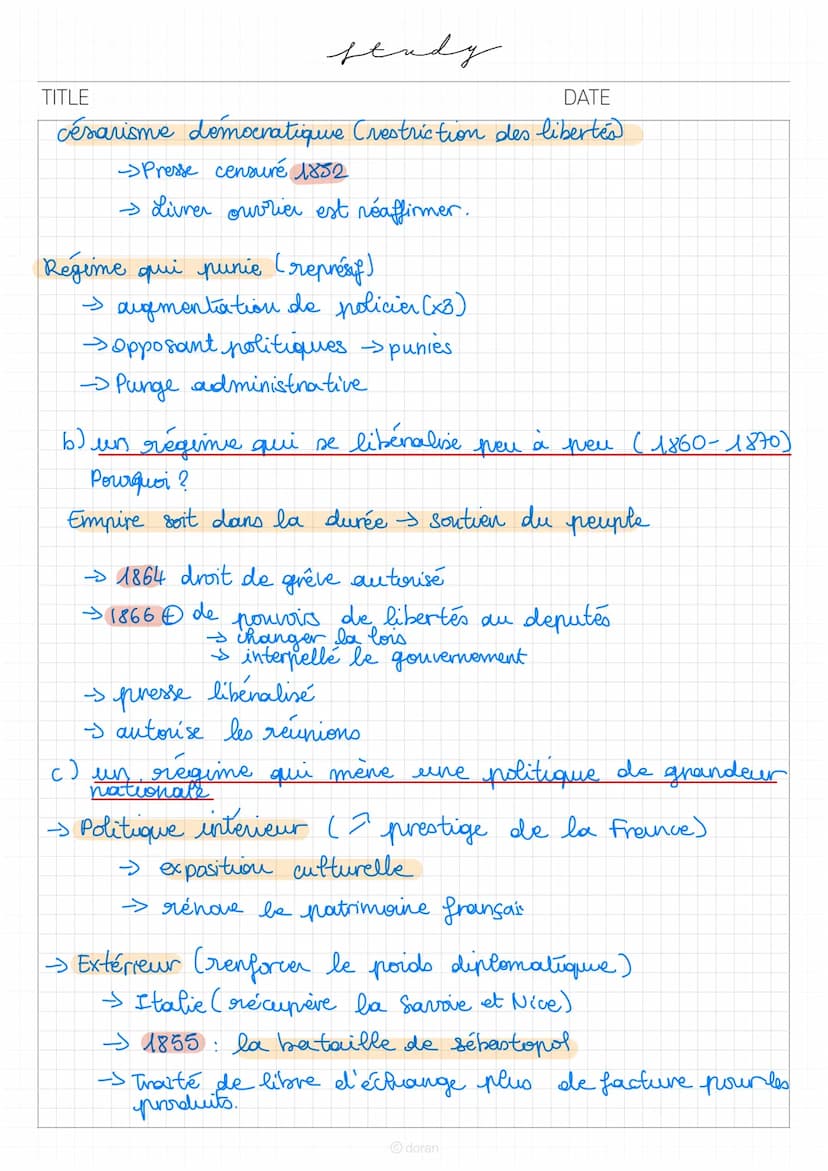 study
TITLE DATE
césarisme démocratique (restriction des libertés)
→ Presse censuré 1852
→ Livrer ouvrier est réaffirmer.
Régime qui punie (représif)
→ augmentation de policier (x3)
→ opposant politiques → puniès
→ Purge administrative
b) un régime qui se libéralise peu à peu (1860-1870)
Pourquoi ?
Empire soit dans la durée → soutien du peuple
→ 1864 droit de grêve autorisé
→ 1866 ⊕ de pouvoirs de libertés au deputés
→ changer la lois
→ interpellé le gouvernement
→ presse libéralisé
→ autorise les réunions
c) un régime qui mène une politique de grandeur
nationale
→ Politique intérieur (↗ prestige de la France)
→ exposition culturelle
→ rénove le patrimoine français
→ Extérieur (renforcer le poids diplomatique)
→ Italie (récupère la Savoie et Nice)
→ 1855 : la bataille de sébastopol
→ Traité de libre d'échange plus de facture pour les
produits.
© doran